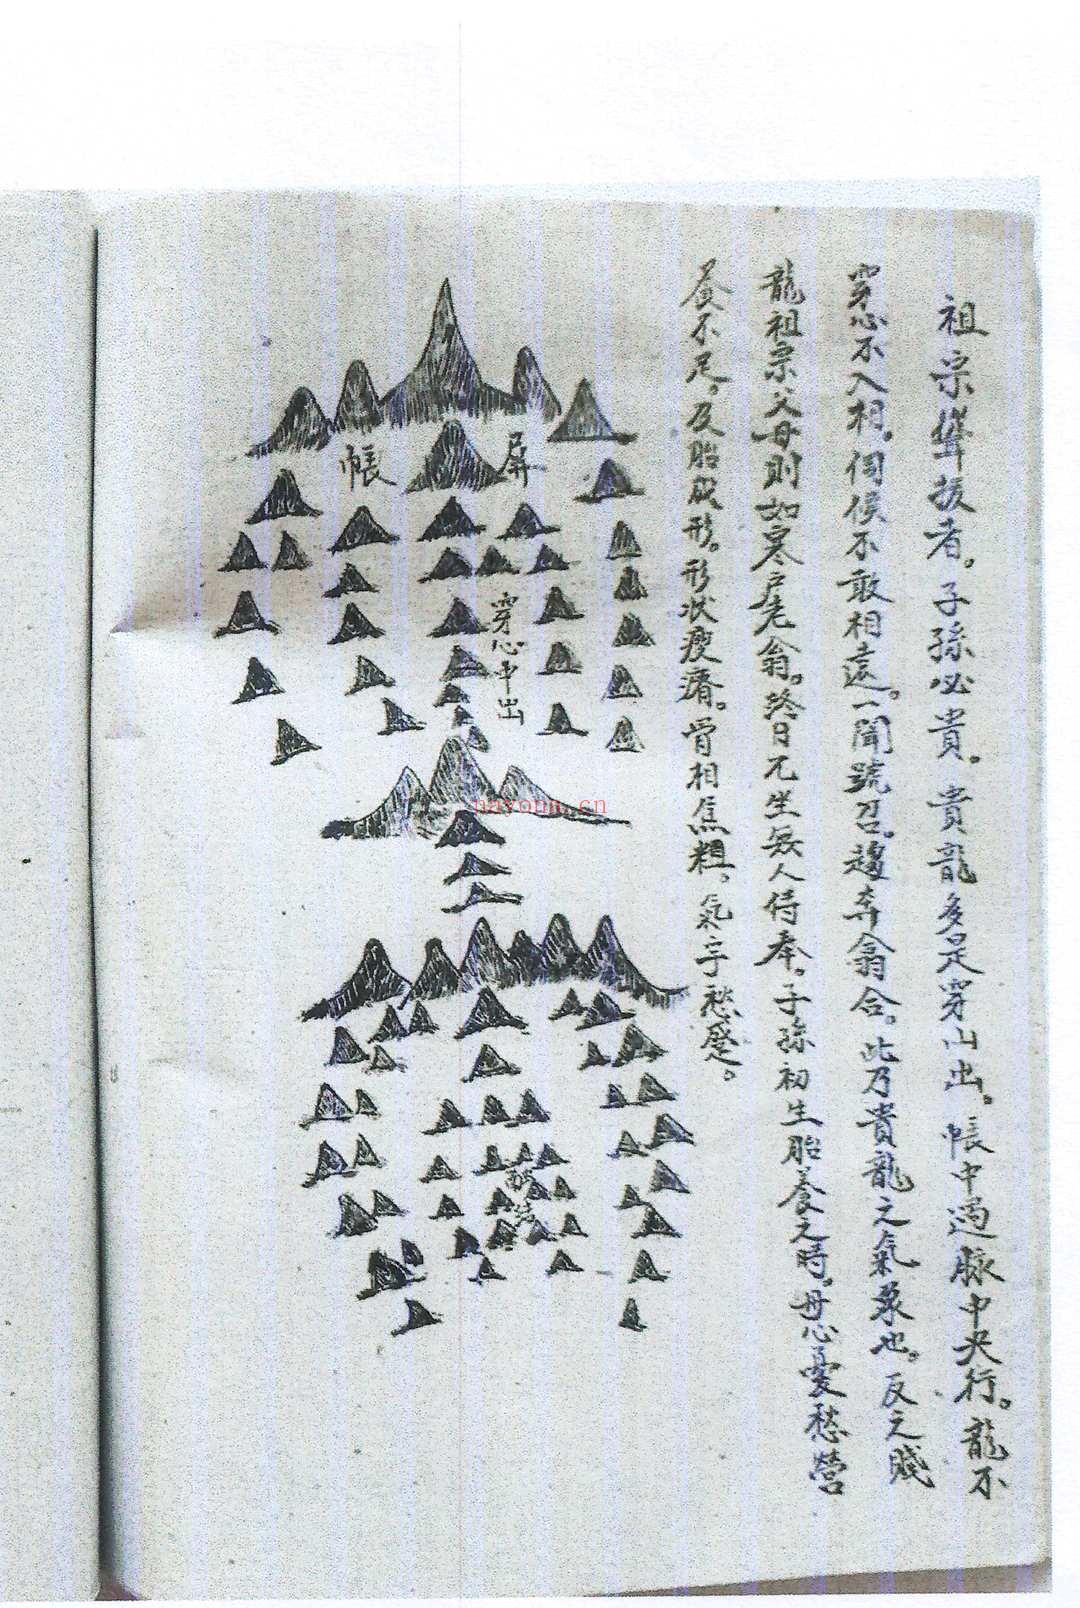 祖宗聳拔者。子孫必貴。貴龍多是穿山出。帳中過脉中央行。龍不
穿心不入相。伺候不敢相遠。一聞號召。趨奔翕合。此乃貴龍之氣象也。反之賤
龍祖宗父母則如寒戶老翁。終日兀坐無人侍奉。子孫初生胎養之時。母心憂愁營
養不足。及胎成形。形狀瘦瘠。骨相焦粗。氣宇愁蹙。
屏
帳
穿心中出
nayona.cn